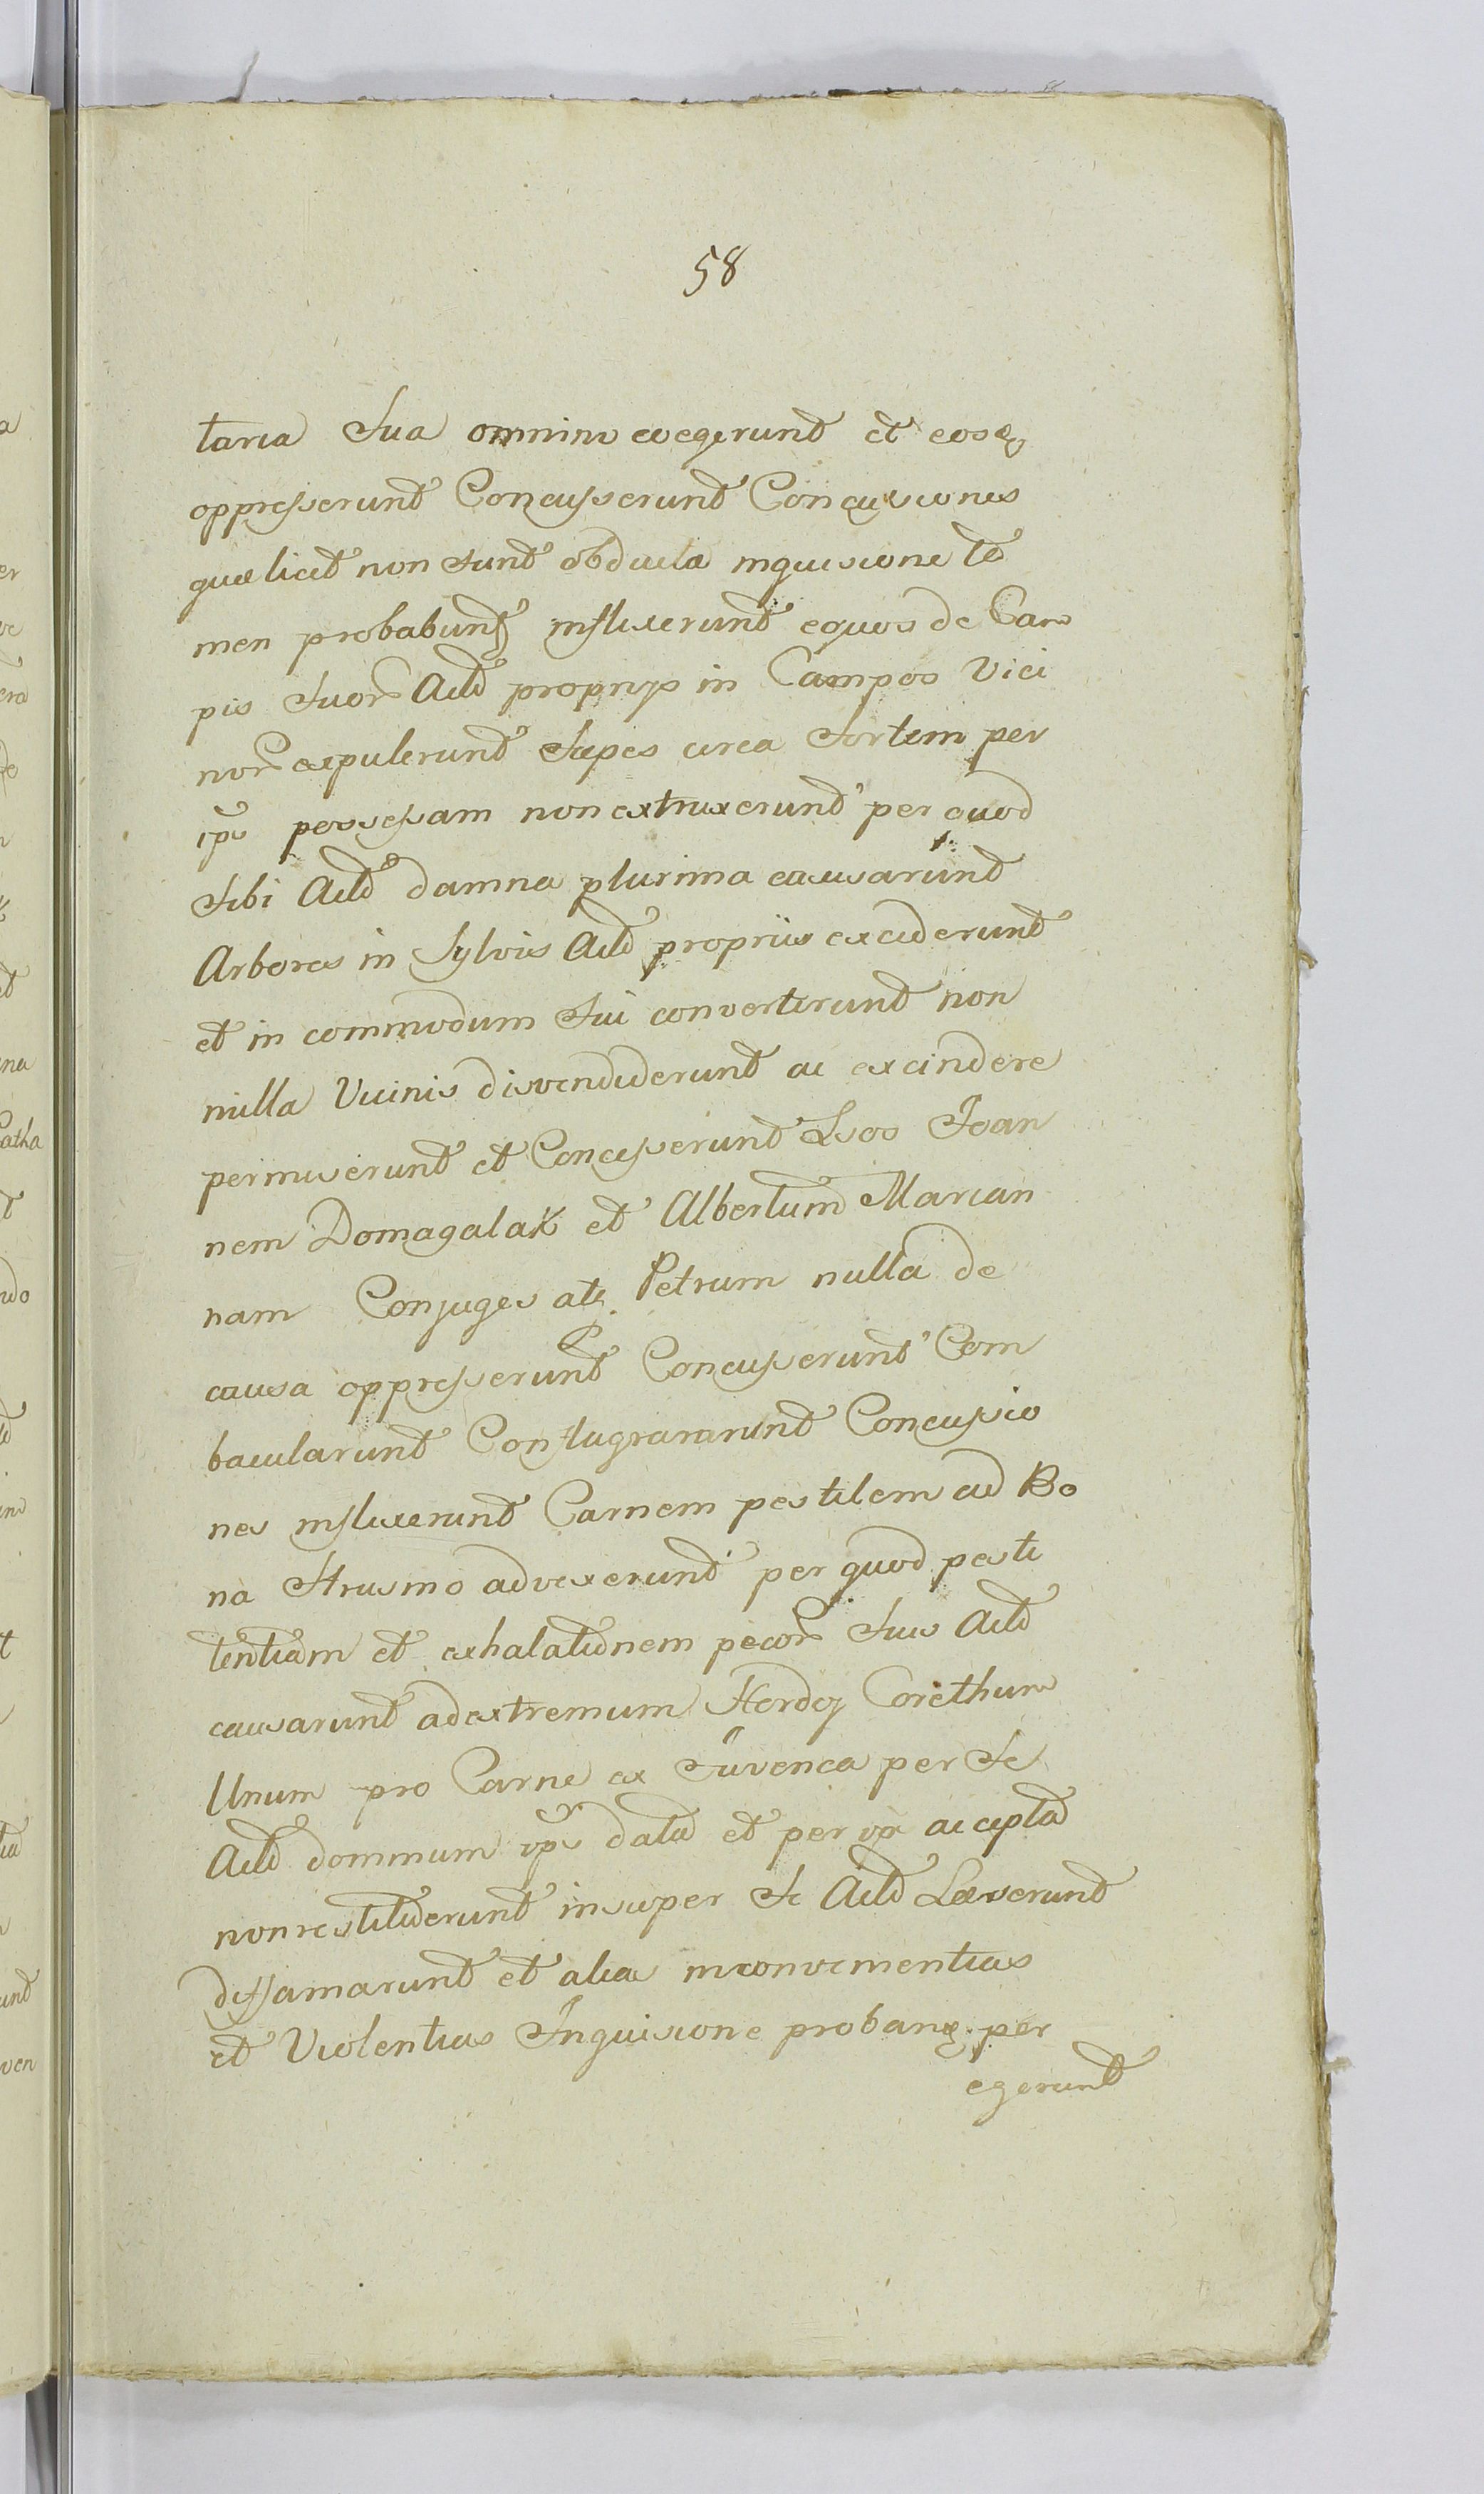 58
taria Sua omnino coegerunt et eosq
oppresserunt Concusserunt Concussiones
quæ licet non sunt obducta inquisione ta
men probabunt inflixerunt equos de Cam
pis Suor Actt proprys in Campos Vici
nor expulerunt Sepes circa Sortem per
ips possessam non extruxerunt per quod
Sibi Actt damna plurima causarunt
Arbores in Sylvis Actt propriis exciderunt
et in commodum Sui converterunt non
nulla Vicinis disvendiderunt ac excindere
permiserunt et Concesserunt Lsos Joan
nem Domagalak et Albertum Marian
nam Conjuges atq Petrum nulla de
causa oppresserunt Concusserunt Com
bacularunt Conflagrararunt Concussio
nes inflixerunt Carnem pestilem ad Bo
na Strusino advexerunt per quod pesti
tentiam et exhalationem pecor Suis Actt
causarunt ad extremum Hordej Corethum
Unum pro Carne ex Juvenca per Se
Actt domnum ips data et per ips accepta
non restituerunt insuper Se Actt Læserunt
diffamarunt et alias inconvenientias
et Violentias Inquisione probanq per
egerunt